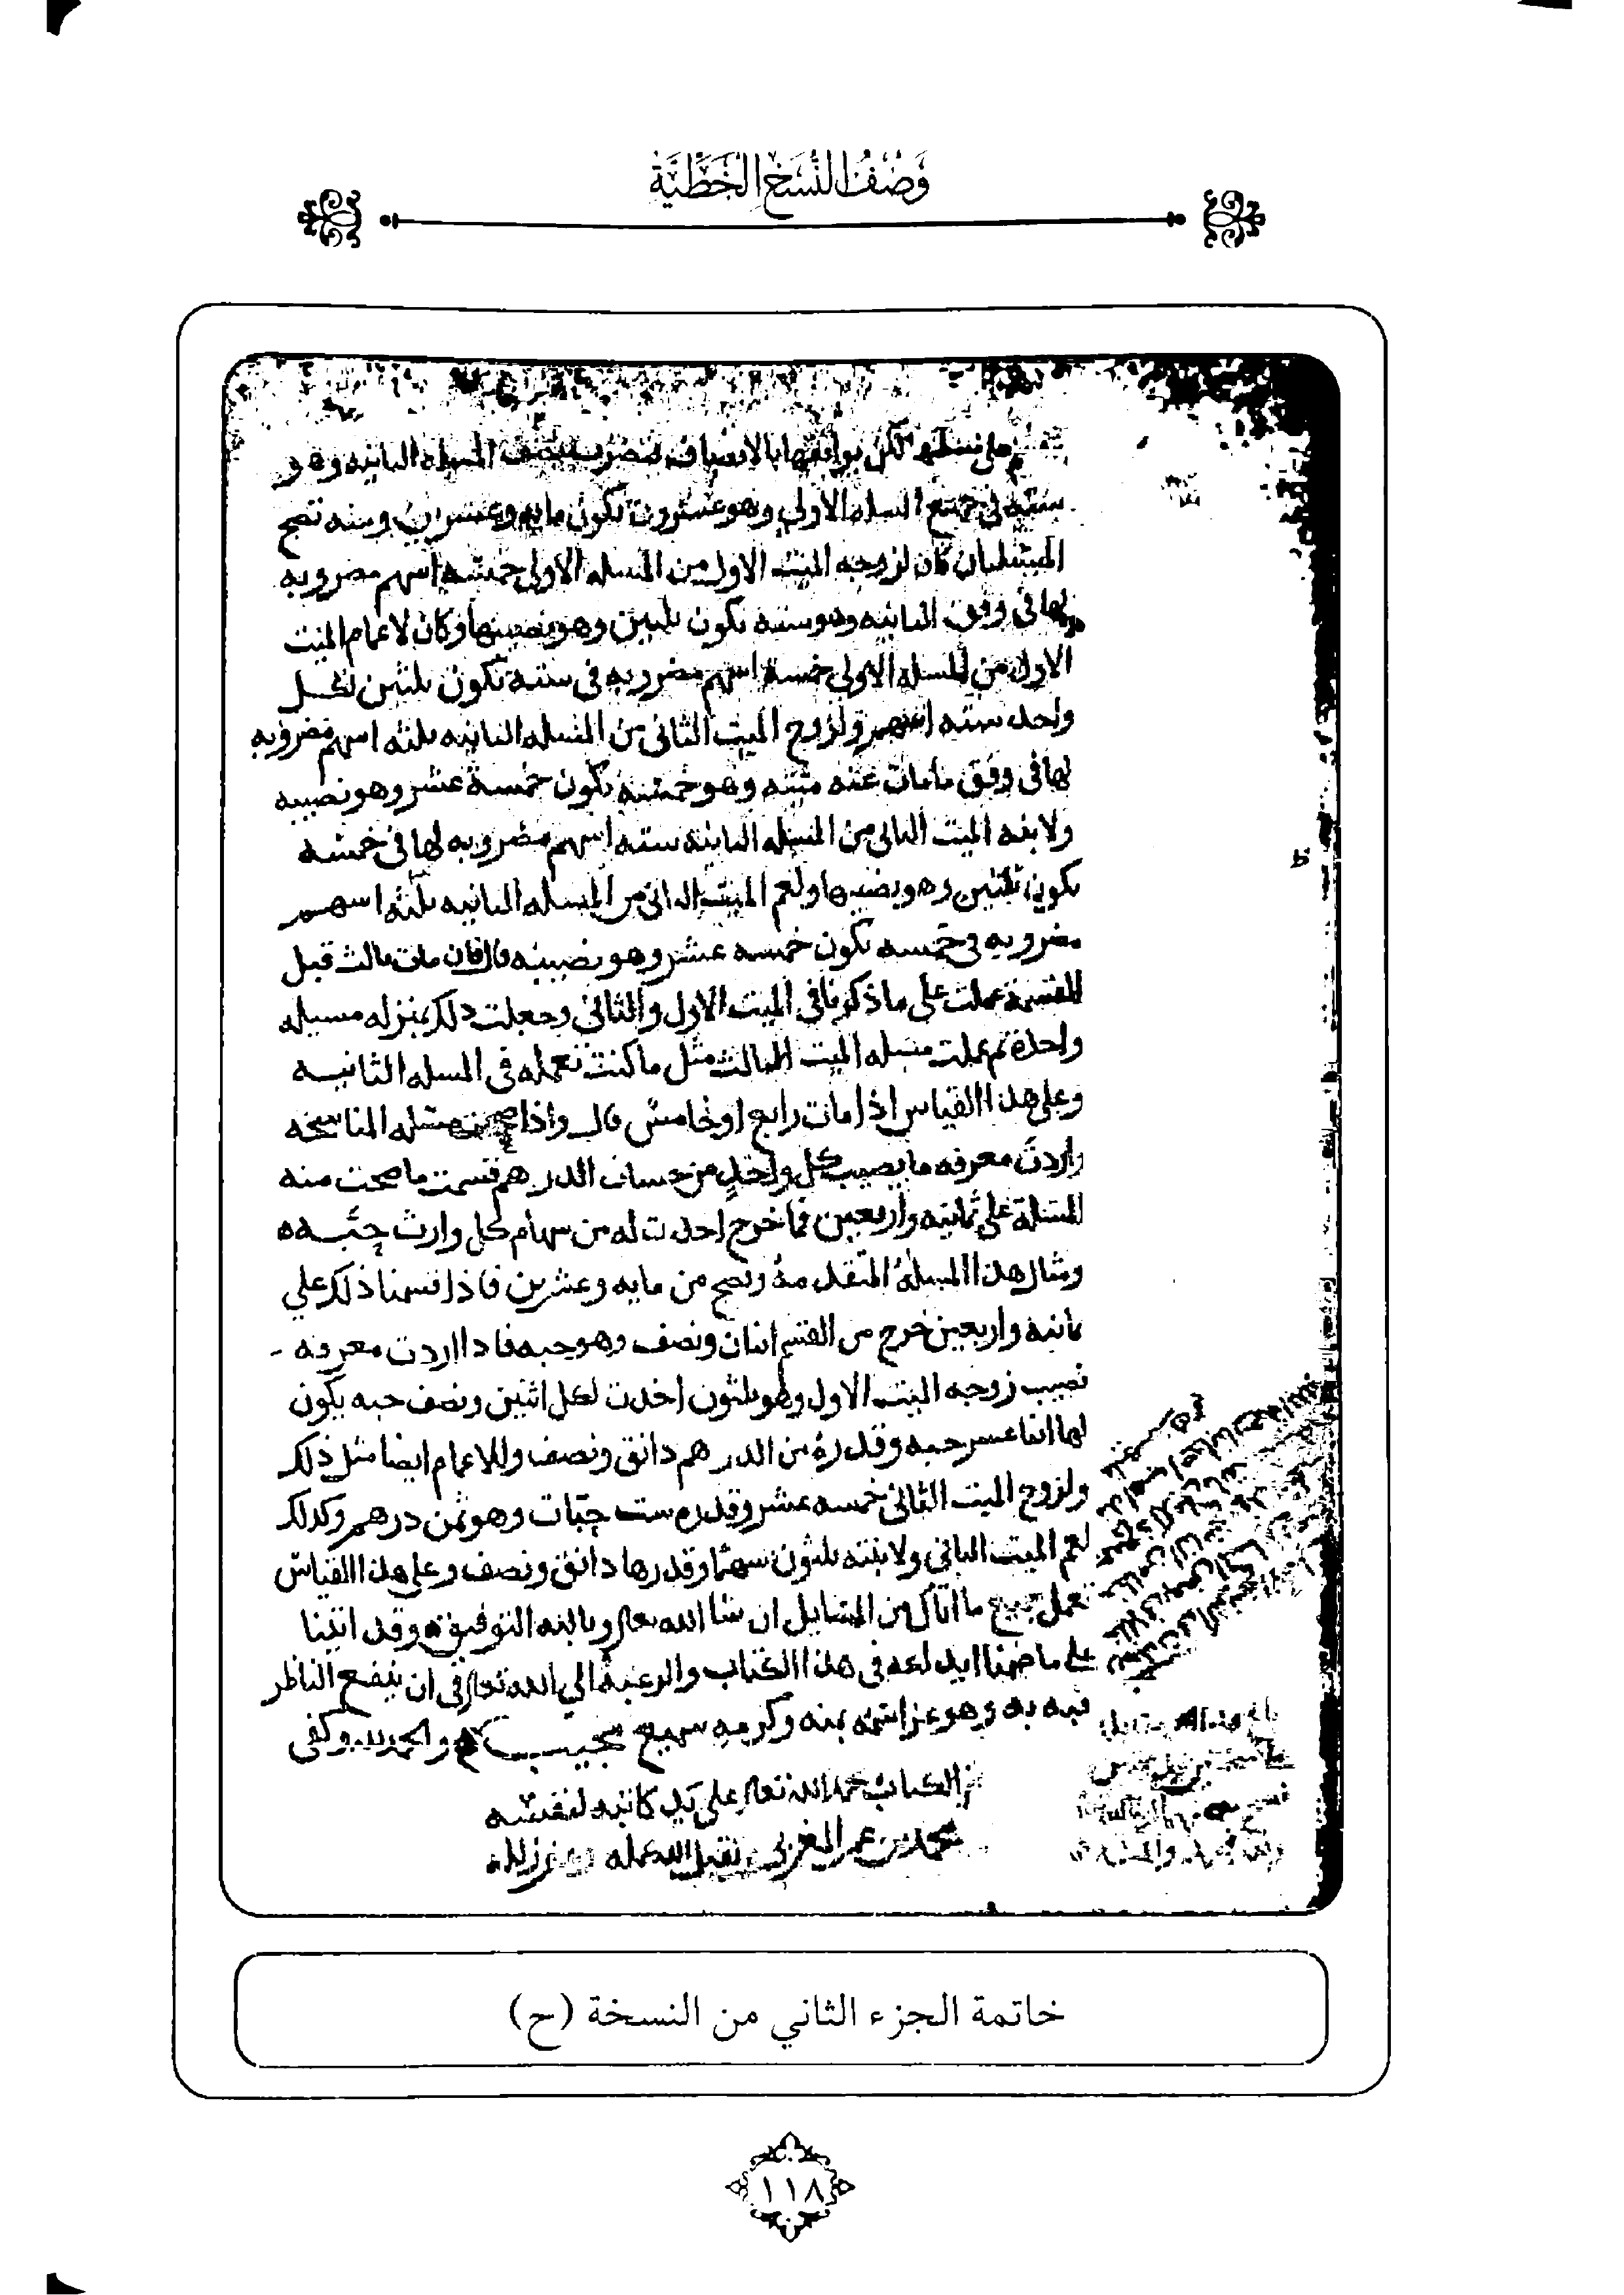 وصف النسخ الخطية
على مسلته لكن يوافقها بالانصاف فتضرب نصف المسله الثانيه وهو
سته في جميع المسله الاولى وهو عشرون تكون مايه وعشرين ومنه تصح
المسئلتان كان لزوجه الميت الاول من المسله الاولى خمسه اسهم مضروبه
لها في وفق الثانيه وهو سته تكون ثلثين وهو نصيبها وكان لاعمام الميت
الاول من المسله الاولى خمسه اسهم مضروبه في سته تكون ثلثين لكل
واحد سته اسهم ولزوج الميت الثاني من المسله الثانيه ثلثه اسهم مضروبه
لها في وفق ما مات عنه ميته وهو خمسه تكون خمسة عشر وهو نصيبه
ولابنه الميت الثاني من المسله الثانيه سته اسهم مضروبه لها في خمسه
تكون ثلثين وهو نصيبها ولعم الميت الثاني من المسله الثانيه ثلثه اسهم
مضروبه في خمسه تكون خمسه عشر وهو نصيبه قال فان مات ثالث قبل
القسمة عملت على ما ذكرنا في الميت الاول والثاني وجعلت ذلك بمنزله مسله
واحدة ثم عملت مسله الميت الثالث مثل ما كنت تعمله في المسله الثانيه
وعلى هذا القياس اذا مات رابع او خامس قال واذا صحت مسله المناسخه
واردت معرفه ما يصيب كل واحد من حساب الدرهم قسمت ما صحت منه
المسئلة على ثمانيه واربعين فما خرج اخذت له من سهام كل وارث حبّه
ومثال هذا المسلة المتقدمة وتصح من مايه وعشرين فاذا قسمنا ذلك على
ثمانيه واربعين خرج من القسم اثنان ونصف وهو حبه فاذا اردت معرفه
نصيب زوجه الميت الاول وهو ثلثون اخذت لكل اثنين ونصف حبه يكون
لها اثنا عشر حبه وقدره من الدرهم دانق ونصف وللاعمام ايضا مثل ذلك
ولزوج الميت الثاني خمسه عشر وقدره ست حبّات وهو ثمن درهم وكذلك
لعم الميت الثاني ولابنته ثلثون سهما وقدرها دانق ونصف وعلى هذا القياس
تعمل جميع ما اتاك من المسايل ان شا الله تعالى وبالله التوفيق وقد اتينا
على ما ضمنا ايداعه في هذا الكتاب والرغبة الى الله تعالى في ان ينفع الناظر
فيه به وهو عز اسمه بمنه وكرمه سميع مجيب والحمد لله وكفى
الكتاب بحمد الله تعالى على يد كاتبه لنفسه
محمد بن عمر المغربي تقبل الله عمله وغفر زلله
خاتمة الجزء الثاني من النسخة (ح)
١١٨